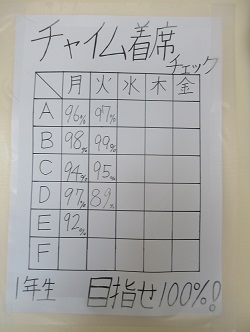 チャイム着席
チェック
月 火 水 木 金
A 96% 97%
B 98% 99%
C 94% 95%
D 97% 89%
E 92%
F
1年生 目指せ100%!